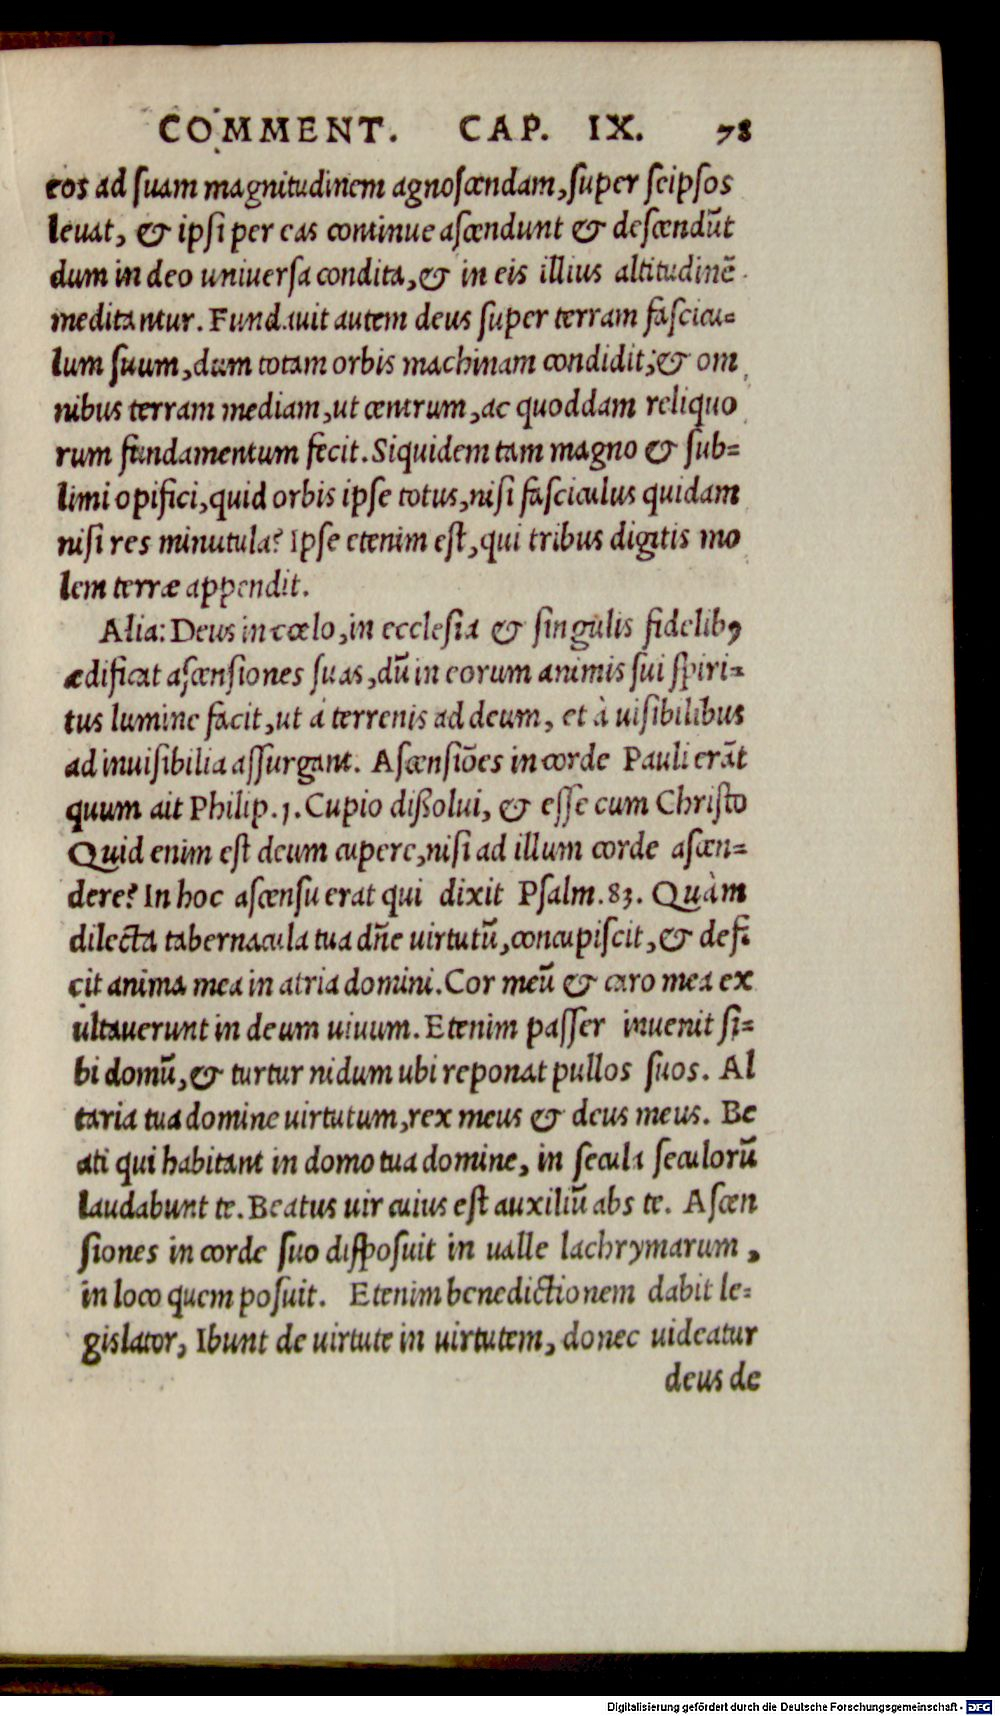 COMMENT. CAP. IX. 78
eos ad ſuam magnitudinem agnoſcendam, ſuper ſeipſos
leuat, & ipſi per eas continue aſcendunt & deſcendūt
dum in deo uniuerſa condita, & in eis illius altitudinē
meditantur. Fundauit autem deus ſuper terram faſcicu=
lum ſuum, dum totam orbis machinam condidit, & om
nibus terram mediam, ut centrum, ac quoddam reliquo
rum fundamentum fecit. Siquidem tam magno & ſub=
limi opifici, quid orbis ipſe totus, niſi faſciculus quidam
niſi res minutula? Ipſe etenim eſt, qui tribus digitis mo
lem terræ appendit.
Alia: Deus in cœlo, in eccleſia & ſingulis fidelibꝰ
ædificat aſcenſiones ſuas, dū in eorum animis ſui ſpiri=
tus lumine facit, ut á terrenis ad deum, et à uiſibilibus
ad inuiſibilia aſſurgant. Aſcenſiōes in corde Pauli erāt
quum ait Philip. 1. Cupio diſſolui, & eſſe cum Chriſto
Quid enim eſt deum cupere, niſi ad illum corde aſcen=
dere? In hoc aſcenſu erat qui dixit Pſalm. 83. Quàm
dilecta tabernacula tua dn̄e uirtutū, concupiſcit, & defi
cit anima mea in atria domini. Cor meū & caro mea ex
ultauerunt in deum uiuum. Etenim paſſer inuenit ſi=
bi domū, & turtur nidum ubi reponat pullos ſuos. Al
taria tua domine uirtutum, rex meus & deus meus. Be
ati qui habitant in domo tua domine, in ſecula ſeculorū
laudabunt te. Beatus uir cuius eſt auxiliū abs te. Aſcen
ſiones in corde ſuo diſpoſuit in ualle lachrymarum,
in loco quem poſuit. Etenim benedictionem dabit le=
gislator, Ibunt de uirtute in uirtutem, donec uideatur
deus de
Digitalisierung gefördert durch die Deutsche Forschungsgemeinschaft - DFG